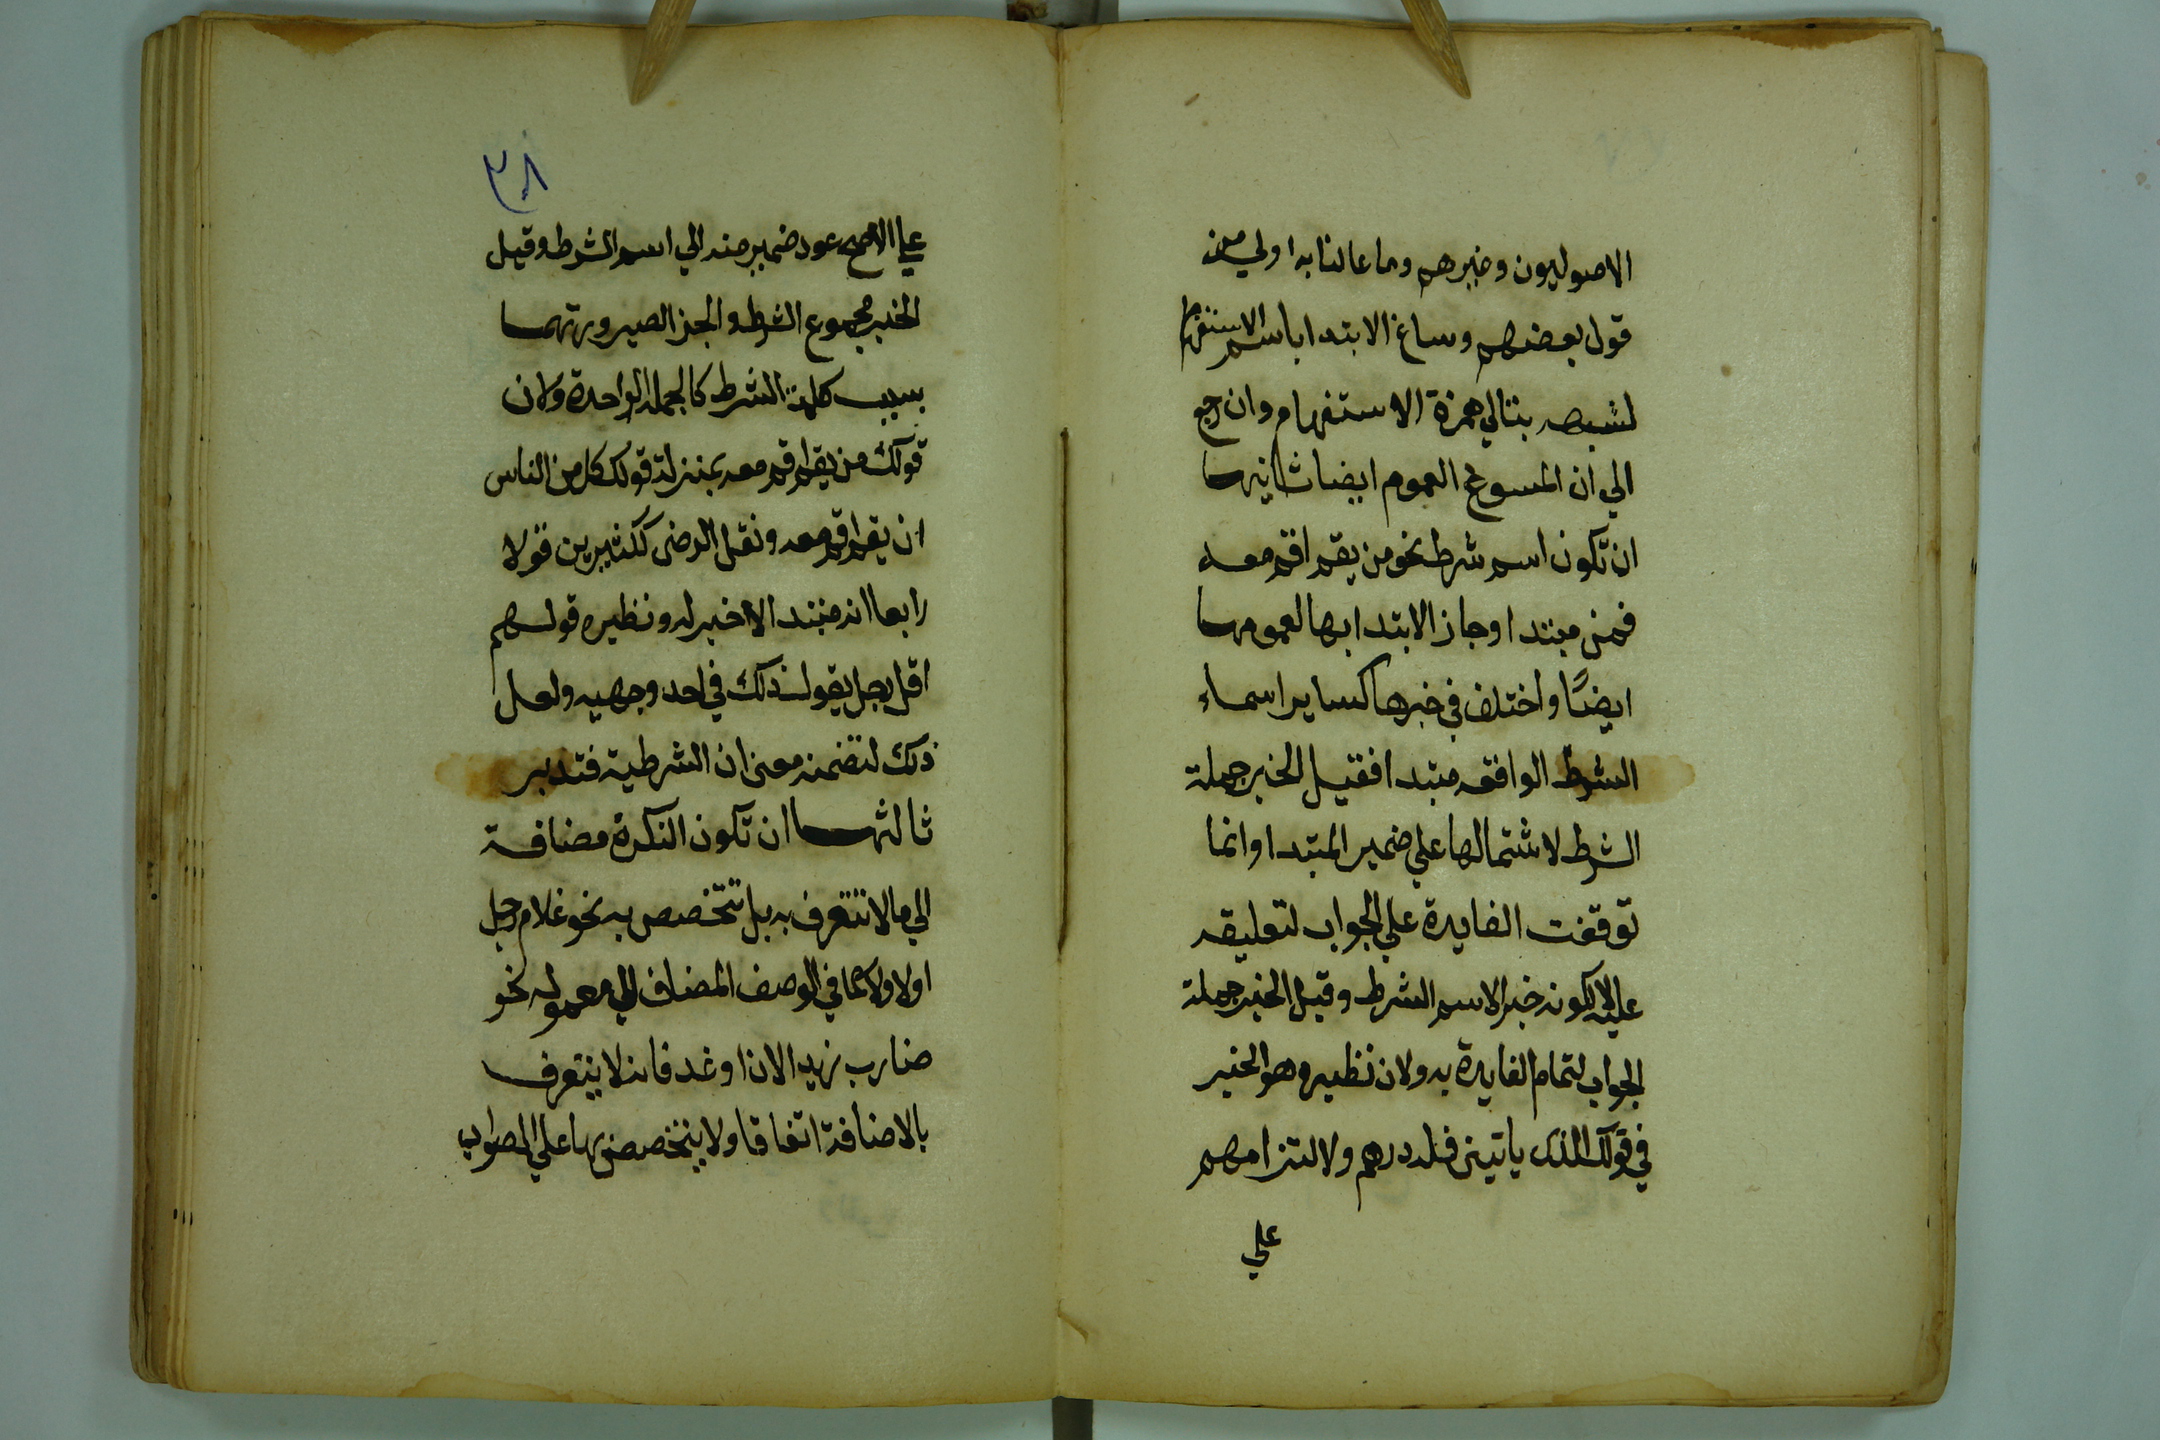 الاصوليون وغيرهم وما عالنا به اولي من
قول بعضهم وساغ الابتدا باسم الاستفهام
لشبهه بتالي همزة الاستفهام وان رجع
الي ان المسوغ العموم ايضا ثانيهما
ان تكون اسم شرط نحو من يقم اقم معه
فمن مبتدا وجاز الابتدا بها لعمومها
ايضًا واختلف في خبرها كساير اسماء
الشرط الواقعه مبتدا فقيل الخبر جملة
الشرط لاشتمالها علي ضمير المبتدا وانما
توقفت الفايدة علي الجواب لتعليقه
عليه لا لكونه خبرا لاسم الشرط وقيل الخبر جملة
الجواب لتمام الفايدة به ولان نظيره هو الخبر
في قولك الذي ياتيني فله درهم ولالتزامهم
علي
٣٨
علي الاصح عود ضمير منه الي اسم الشرط وقيل
الخبر مجموع الشرط والجزا لصيرورتهما
بسبب كلمة الشرط كالجملة الواحدة ولان
قولك من يقم اقم معه بمنزلة قولك كل من الناس
ان يقم اقم معه ونقل الرضى ككثيرين قولا
رابعا انه مبتدا لا خبر له ونظيره قولهم
اقل رجل يقول ذلك في احد وجهيه ولعل
ذلك لتضمنه معنى ان الشرطية فتدبر
ثالثها ان تكون النكرة مضافة
الي ما لا تتعرف به بل تتخصص به نحو غلام رجل
اولا ولا كما في الوصف المضاف الي معموله نحو
ضارب زيد الان او غد فانه لا يتعرف
بالاضافة اتفاقا ولا يتخصص بها علي الصواب